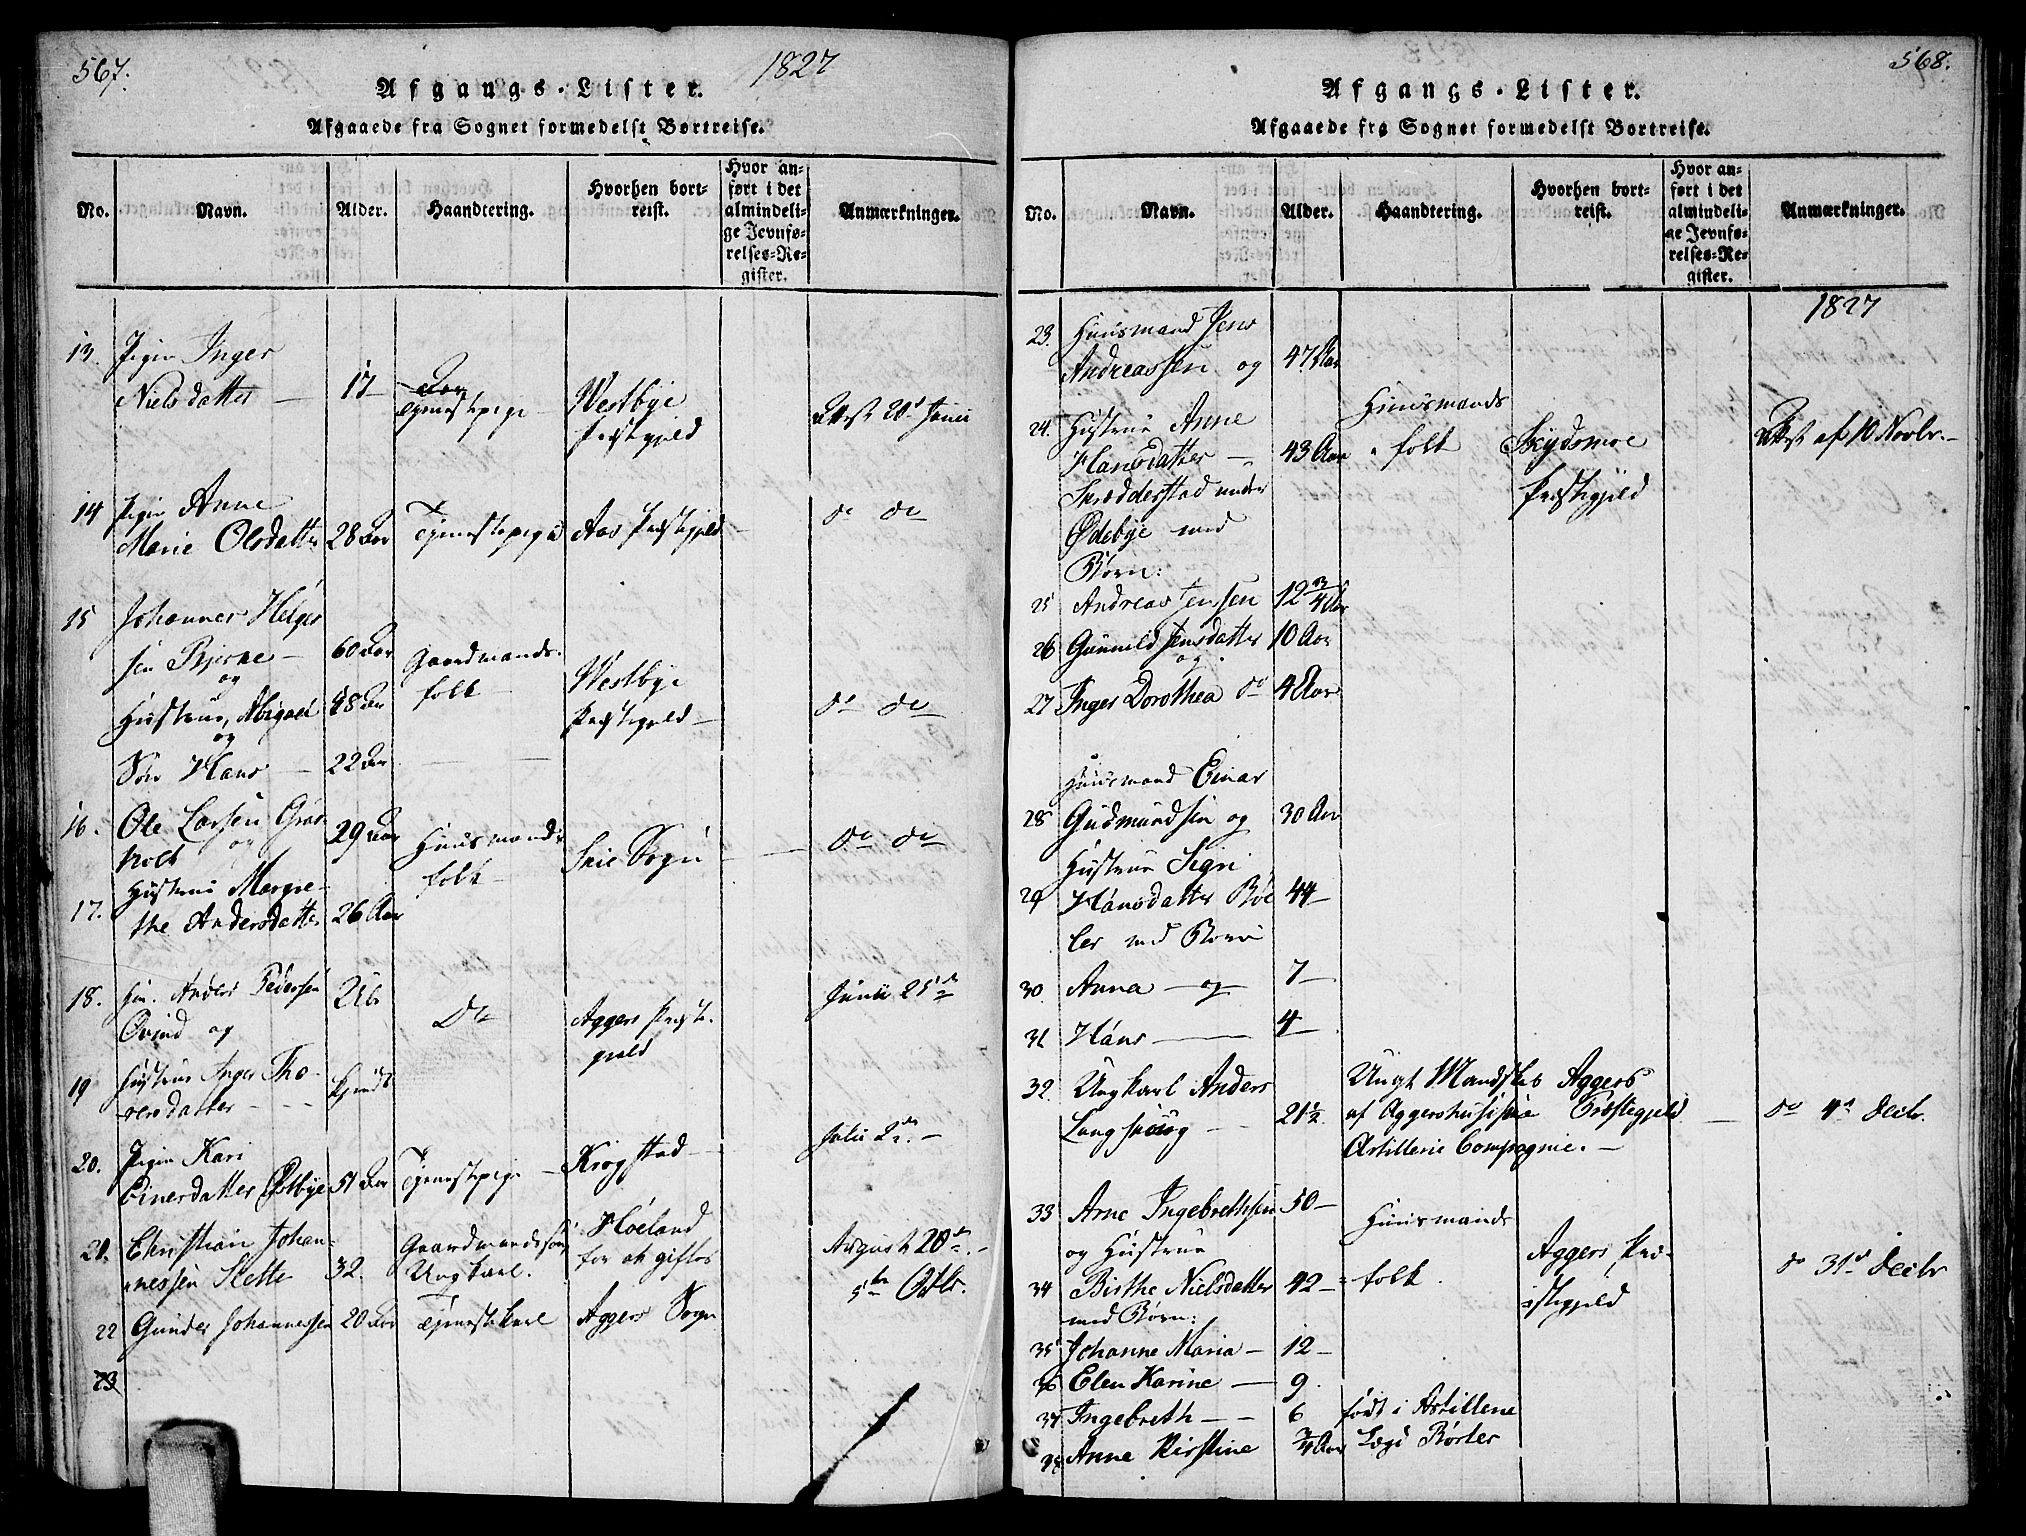 567.
1827
Afgangs-Lister.
Afgaaede fra Sognet formedelst Bortreise.
No.
Navn.
Alder.
Haandtering.
Hvorhen bort-
reist.
Hvor an-
ført i det
almindeli-
ge Jevnfø-
relses-Re-
gister.
Anmærkninger.
13. Pigen Inger
Nielsdatter 17 Aar Tjenestepige Westbye
Præstegjeld
Attest 20d Junii
14 Pigen Anne
Marie Olsdatter 28 Aar Tjenestepige Aas Præstegjeld do do
15 Johannes Helges
sen Bjerke 60 Aar Gaardmands-
og folk Westbye
Hustrue, Abigael 48 Aar Præstegjeld do do
og
Søn Hans 22 Aar
16. Ole Larsen Græs
holt og 29 Aar Huusmands
folk Skie Sogn do do
17. Hustrue Margre-
the Andersdatter 26 Aar
18. Anders Pedersen
Øvind og Do Aggers Præste-
gjeld Junii 25de
19 Hustrue Inger Tho-
resdatter
20. Pigen Kari
Einersdatter Østbye 51 Aar Tjenestepige Krogstad Julii 2den
21. Christian Johan-
nessen Slette 32. Gaardmandssøn
Ungkarl. Høeland
for at giftes August 20de
22 Gunder Johannessen 20 Aar Tjenestekarl Aggers Sogn 5te Octbr.
23
568.
Afgangs-Lister.
Afgaaede fra Sognet formedelst Bortreise.
No.
Navn.
Alder.
Haandtering.
Hvorhen bort-
reist.
Hvor an-
ført i det
almindeli-
ge Jevnfø-
relses-Re-
gister.
Anmærkninger.
1827
23. Huusmand Jens
Andreassen og 47 Aar
24. Hustrue Anne
Hansdatter 43 Aar Huusmands
folk Skydsmoe
Præstegjeld Attest af 10 Novbr.
Skrædderstad under
Ødebye med
Børn:
25 Andreas Jenssen 12 3/4 Aar
26 Gunnild Jensdatter 10 Aar
og
27 Inger Dorothea do 4 Aar
Huusmand Einar
28 Gudmundsen og 30 Aar
Hustrue Sigri
29 Hansdatter Bøe 44
ler med Børn
30. Anna og 7
31 Hans 4
32. Ungkarl Anders
Langskoug 21 1/2. Ungt Mandskab
af Aggershusiske
Artillerie Compagnie. Aggers
Præstegjeld. do 4de Decbr.
33 Arne Ingebrethsen 50
og Hustrue
34 Birthe Nielsdatter 42 Huusmands
folk. Aggers Præ-
stegjeld do 31d Decbr
med Børn:
35 Johanne Maria 12
36 Elen Karine 9.
37 Ingebreth 6 født i Artillerie
38 Anne Kirstine 3/4 Aar Lægd Børter